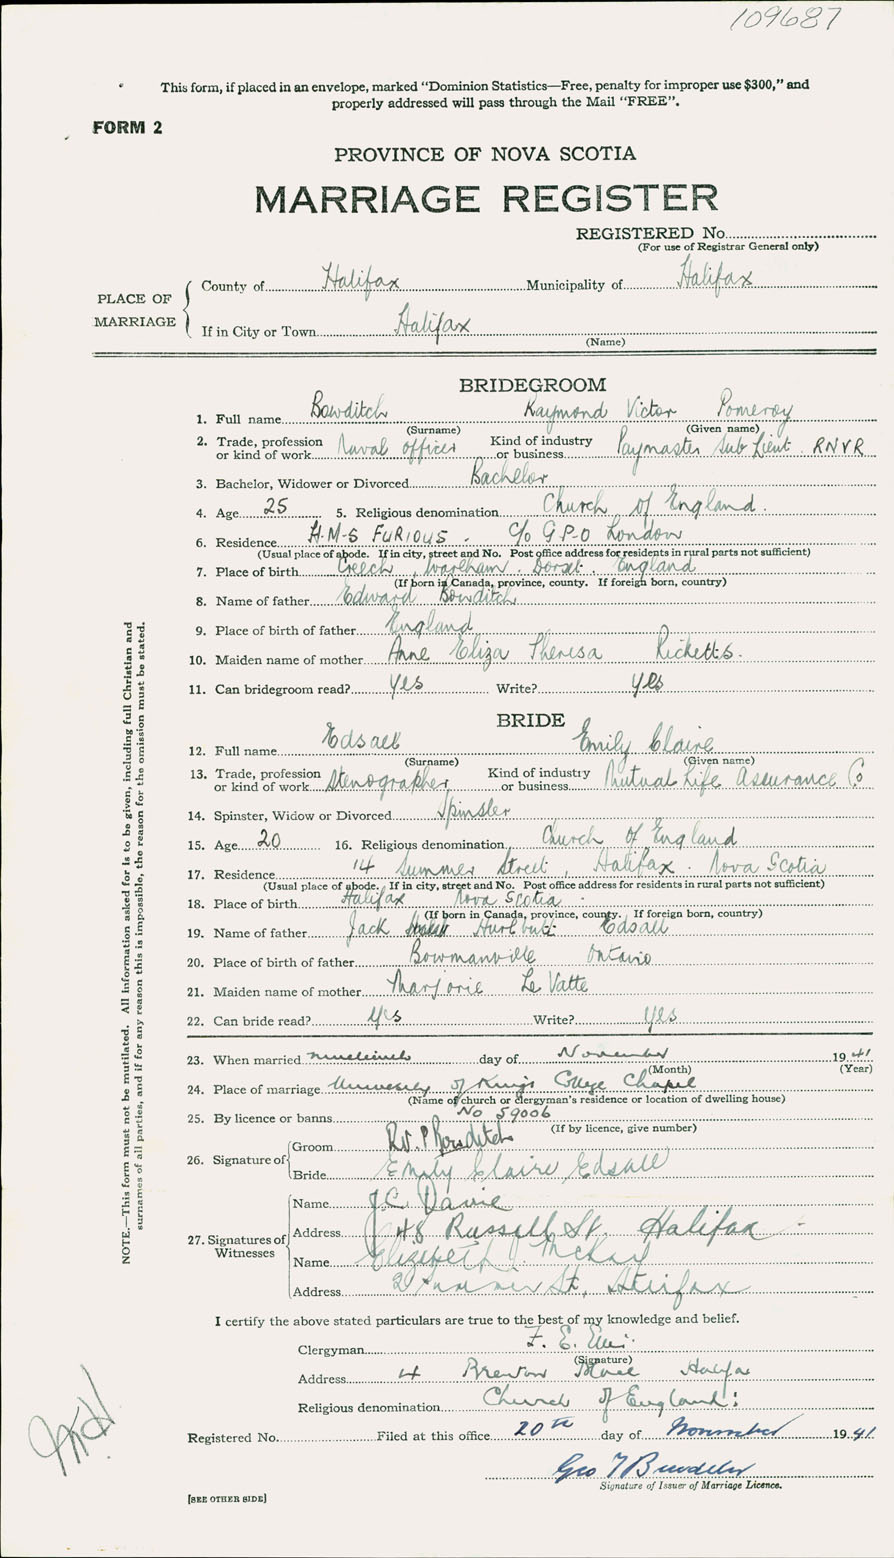 109687
This form, if placed in an envelope, marked “Dominion Statistics—Free, penalty for improper use $300,” and
properly addressed will pass through the Mail “FREE”.
FORM 2
PROVINCE OF NOVA SCOTIA
MARRIAGE REGISTER
REGISTERED No.
(For use of Registrar General only)
PLACE OF MARRIAGE
County of Halifax Municipality of Halifax
If in City or Town Halifax
(Name)
BRIDEGROOM
1. Full name Bowditch Raymond Victor Pomeroy
(Surname) (Given name)
2. Trade, profession or kind of work Naval officer Kind of industry or business Paymaster Sub Lieut. RNVR
3. Bachelor, Widower or Divorced Bachelor
4. Age 25 5. Religious denomination Church of England.
6. Residence H.M.S FURIOUS. C/o G.P.O London
(Usual place of abode. If in city, street and No. Post office address for residents in rural parts not sufficient)
7. Place of birth Creech, Wareham. Dorset. England
(If born in Canada, province, county. If foreign born, country)
8. Name of father Edward Bowditch
9. Place of birth of father England
10. Maiden name of mother Anne Eliza Theresa Ricketts.
11. Can bridegroom read? yes Write? yes
BRIDE
12. Full name Edsall Emily Claire
(Surname) (Given name)
13. Trade, profession or kind of work Stenographer Kind of industry or business Mutual Life Assurance Co
14. Spinster, Widow or Divorced Spinster
15. Age 20 16. Religious denomination Church of England
17. Residence 14 Summer Street, Halifax. Nova Scotia
(Usual place of abode. If in city, street and No. Post office address for residents in rural parts not sufficient)
18. Place of birth Halifax Nova Scotia.
(If born in Canada, province, county. If foreign born, country)
19. Name of father Jack Hurlbutt Edsall
20. Place of birth of father Bowmanville Ontario
21. Maiden name of mother Marjorie Le Vatte
22. Can bride read? yes Write? yes
23. When married nineteenth day of November 1941
(Month) (Year)
24. Place of marriage University of Kings College Chapel
(Name of church or clergyman's residence or location of dwelling house)
25. By licence or banns No 59006
(If by licence, give number)
26. Signature of
Groom R.V.P Bowditch
Bride Emily Claire Edsall
27. Signatures of Witnesses
Name J.C. Davie
Address 48 Russell St. Halifax
Name Elizabeth McKay
Address St, Halifax
I certify the above stated particulars are true to the best of my knowledge and belief.
Clergyman F. E.
(Signature)
Address 4 Brenton Place Halifax
Religious denomination Church of England:
Registered No. Filed at this office 20th day of November 1941
Geo
Signature of Issuer of Marriage Licence.
[SEE OTHER SIDE]
NOTE.—This form must not be mutilated. All information asked for is to be given, including full Christian and
surnames of all parties, and if for any reason this is impossible, the reason for the omission must be stated.